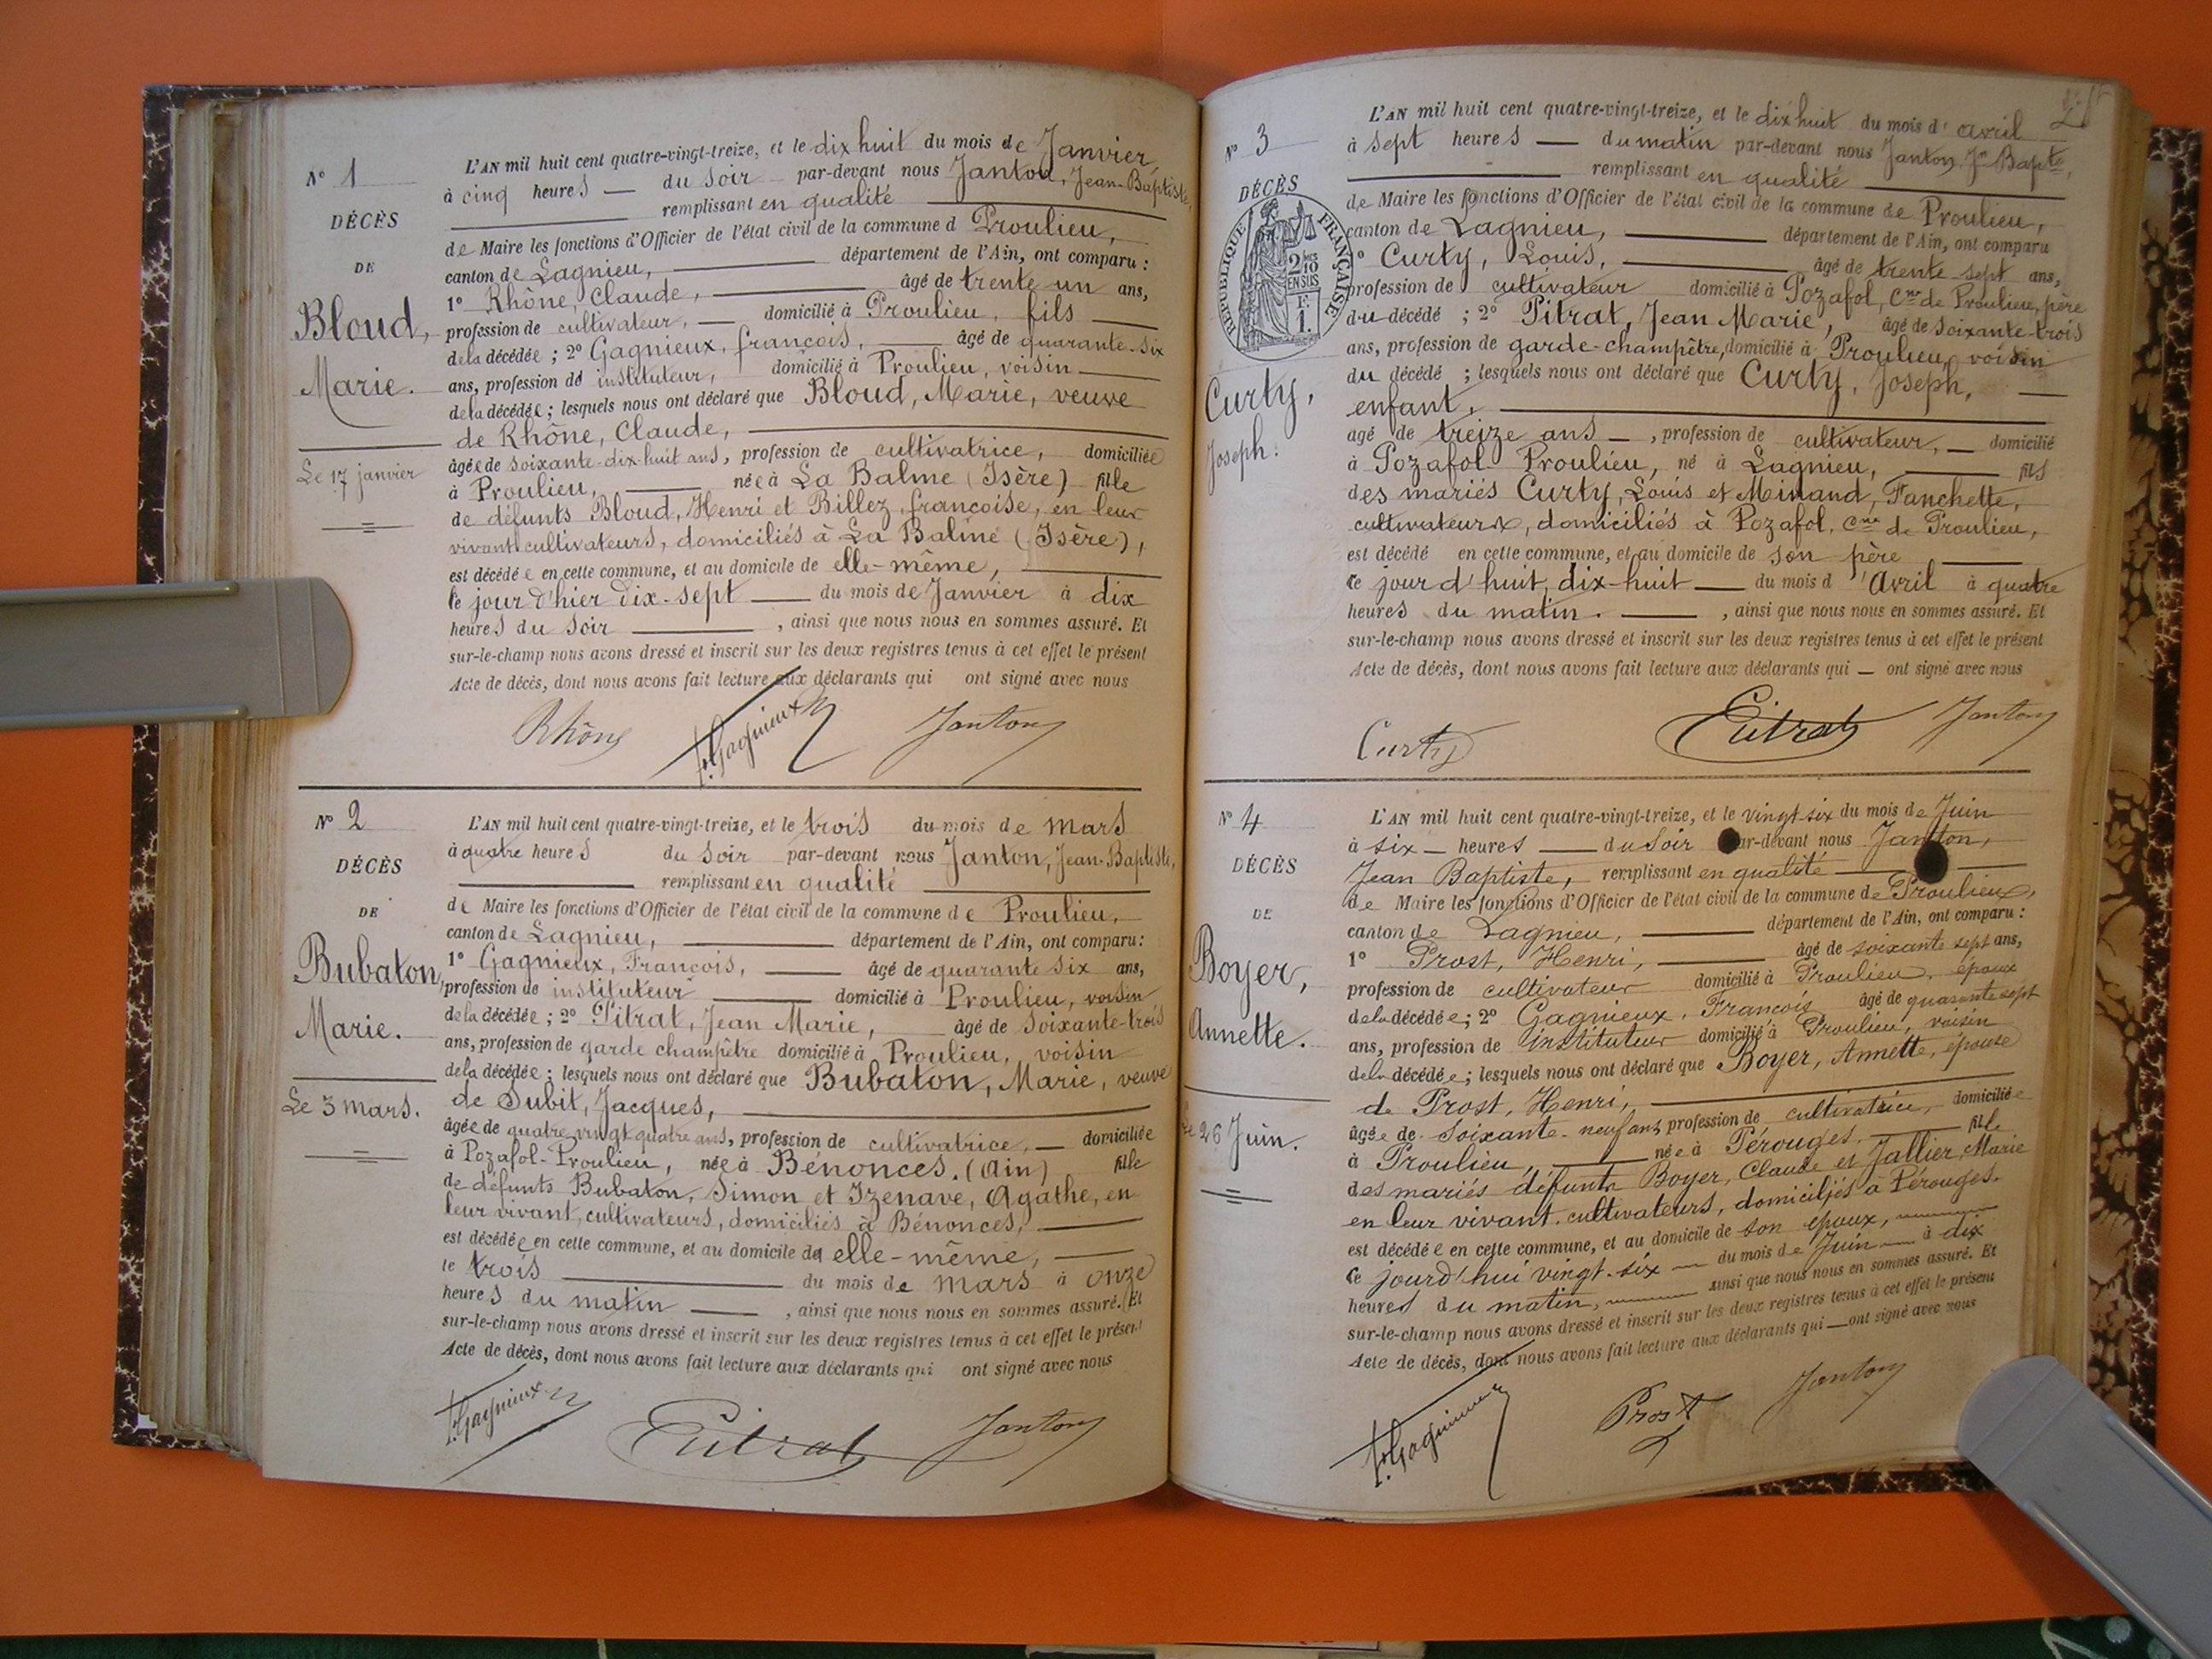 N° 1
DÉCÈS
DE
Bloud,
Marie.
Le 17 janvier
L'AN mil huit cent quatre-vingt-treize, et le dix huit du mois de Janvier,
à cinq heures — du soir par-devant nous Janton, Jean-Baptiste,
remplissant en qualité
de Maire les fonctions d'Officier de l'état civil de la commune d Proulieu,
canton de Lagnieu, département de l'Ain, ont comparu :
1° Rhône, Claude, âgé de trente un ans,
profession de cultivateur, — domicilié à Proulieu, fils
de la décédée ; 2° Gagnieux, françois, âgé de quarante-six
ans, profession de instituteur, domicilié à Proulieu, voisin
de la décédée ; lesquels nous ont déclaré que Bloud, Marie, veuve
de Rhône, Claude,
âgée de soixante-dix-huit ans, profession de cultivatrice, domiciliée
à Proulieu, née à La Balme (Isère) fille
de défunts Bloud, Henri et Billez, françoise, en leur
vivant cultivateurs, domiciliés à La Balme (Isère),
est décédée en cette commune, et au domicile de elle-même,
le jour d'hier dix-sept — du mois de Janvier à dix
heures du soir , ainsi que nous nous en sommes assuré. Et
sur-le-champ nous avons dressé et inscrit sur les deux registres tenus à cet effet le présent
Acte de décès, dont nous avons fait lecture aux déclarants qui ont signé avec nous
Rhône f. Gagnieux Janton
N° 2
DÉCÈS
DE
Bubaton,
Marie.
Le 3 mars.
L'AN mil huit cent quatre-vingt-treize, et le trois du mois de mars
à quatre heures du soir par-devant nous Janton, Jean-Baptiste,
remplissant en qualité
de Maire les fonctions d'Officier de l'état civil de la commune de Proulieu,
canton de Lagnieu, département de l'Ain, ont comparu :
1° Gagnieux, François, âgé de quarante six ans,
profession de instituteur domicilié à Proulieu, voisin
de la décédée ; 2° Pitrat, Jean Marie, âgé de soixante-trois
ans, profession de garde champêtre domicilié à Proulieu, voisin
de la décédée ; lesquels nous ont déclaré que Bubaton, Marie, veuve
de Subit, Jacques,
âgée de quatre vingt quatre ans, profession de cultivatrice, — domiciliée
à Pozafol-Proulieu, née à Bénonces. (Ain) fille
de défunts Bubaton, Simon et Izenave, Agathe, en
leur vivant, cultivateurs, domiciliés à Bénonces,
est décédée en cette commune, et au domicile de elle-même,
le trois du mois de mars à onze
heures du matin , ainsi que nous nous en sommes assuré. Et
sur-le-champ nous avons dressé et inscrit sur les deux registres tenus à cet effet le présent
Acte de décès, dont nous avons fait lecture aux déclarants qui ont signé avec nous
f. Gagnieux Pitrat Janton
N° 3
DÉCÈS
RÉPUBLIQUE FRANÇAISE
2 10
EN SUS
F.
1.
Curty,
Joseph.
L'AN mil huit cent quatre-vingt-treize, et le dix huit du mois d' avril
à sept heures — du matin par-devant nous Janton, Jn Bapte,
remplissant en qualité
de Maire les fonctions d'Officier de l'état civil de la commune de Proulieu,
canton de Lagnieu, département de l'Ain, ont comparu
1° Curty, Louis, âgé de trente-sept ans,
profession de cultivateur domicilié à Pozafol, cne de Proulieu, père
du décédé ; 2° Pitrat, Jean Marie, âgé de soixante-trois
ans, profession de garde-champêtre, domicilié à Proulieu, voisin
du décédé ; lesquels nous ont déclaré que Curty, Joseph,
enfant,
agé de treize ans —, profession de cultivateur, — domicilié
à Pozafol-Proulieu, né à Lagnieu, fils
des mariés Curty, Louis et Minand, Fanchette,
cultivateurs, domiciliés à Pozafol, cne de Proulieu,
est décédé en cette commune, et au domicile de son père
ce jour d'huit, dix-huit — du mois d 'Avril à quatre
heures du matin. , ainsi que nous nous en sommes assuré. Et
sur-le-champ nous avons dressé et inscrit sur les deux registres tenus à cet effet le présent
Acte de décès, dont nous avons fait lecture aux déclarants qui — ont signé avec nous
Curty Pitrat Janton
N° 4
DÉCÈS
DE
Boyer,
Annette.
Le 26 Juin.
L'AN mil huit cent quatre-vingt-treize, et le vingt-six du mois de Juin
à six — heures — du soir par-devant nous Janton,
Jean Baptiste, remplissant en qualité
de Maire les fonctions d'Officier de l'état civil de la commune de Proulieu,
canton de Lagnieu, département de l'Ain, ont comparu :
1° Prost, Henri, âgé de soixante sept ans,
profession de cultivateur domicilié à Proulieu, époux
de la décédée ; 2° Gagnieux, François âgé de quarante sept
ans, profession de Instituteur domicilié à Proulieu, voisin
de la décédée ; lesquels nous ont déclaré que Boyer, Annette, épouse
de Prost, Henri,
âgée de soixante-neuf ans profession de cultivatrice, domiciliée
à Proulieu, née à Pérouges, fille
des mariés défunts Boyer, Claude et Jallier, Marie
en leur vivant cultivateurs, domiciliés à Pérouges.
est décédée en cette commune, et au domicile de son époux,
ce jourd'hui vingt-six — du mois de Juin — à dix
heures du matin, ainsi que nous nous en sommes assuré. Et
sur-le-champ nous avons dressé et inscrit sur les deux registres tenus à cet effet le présent
Acte de décès, dont nous avons fait lecture aux déclarants qui — ont signé avec nous
f. Gagnieux Prost Janton